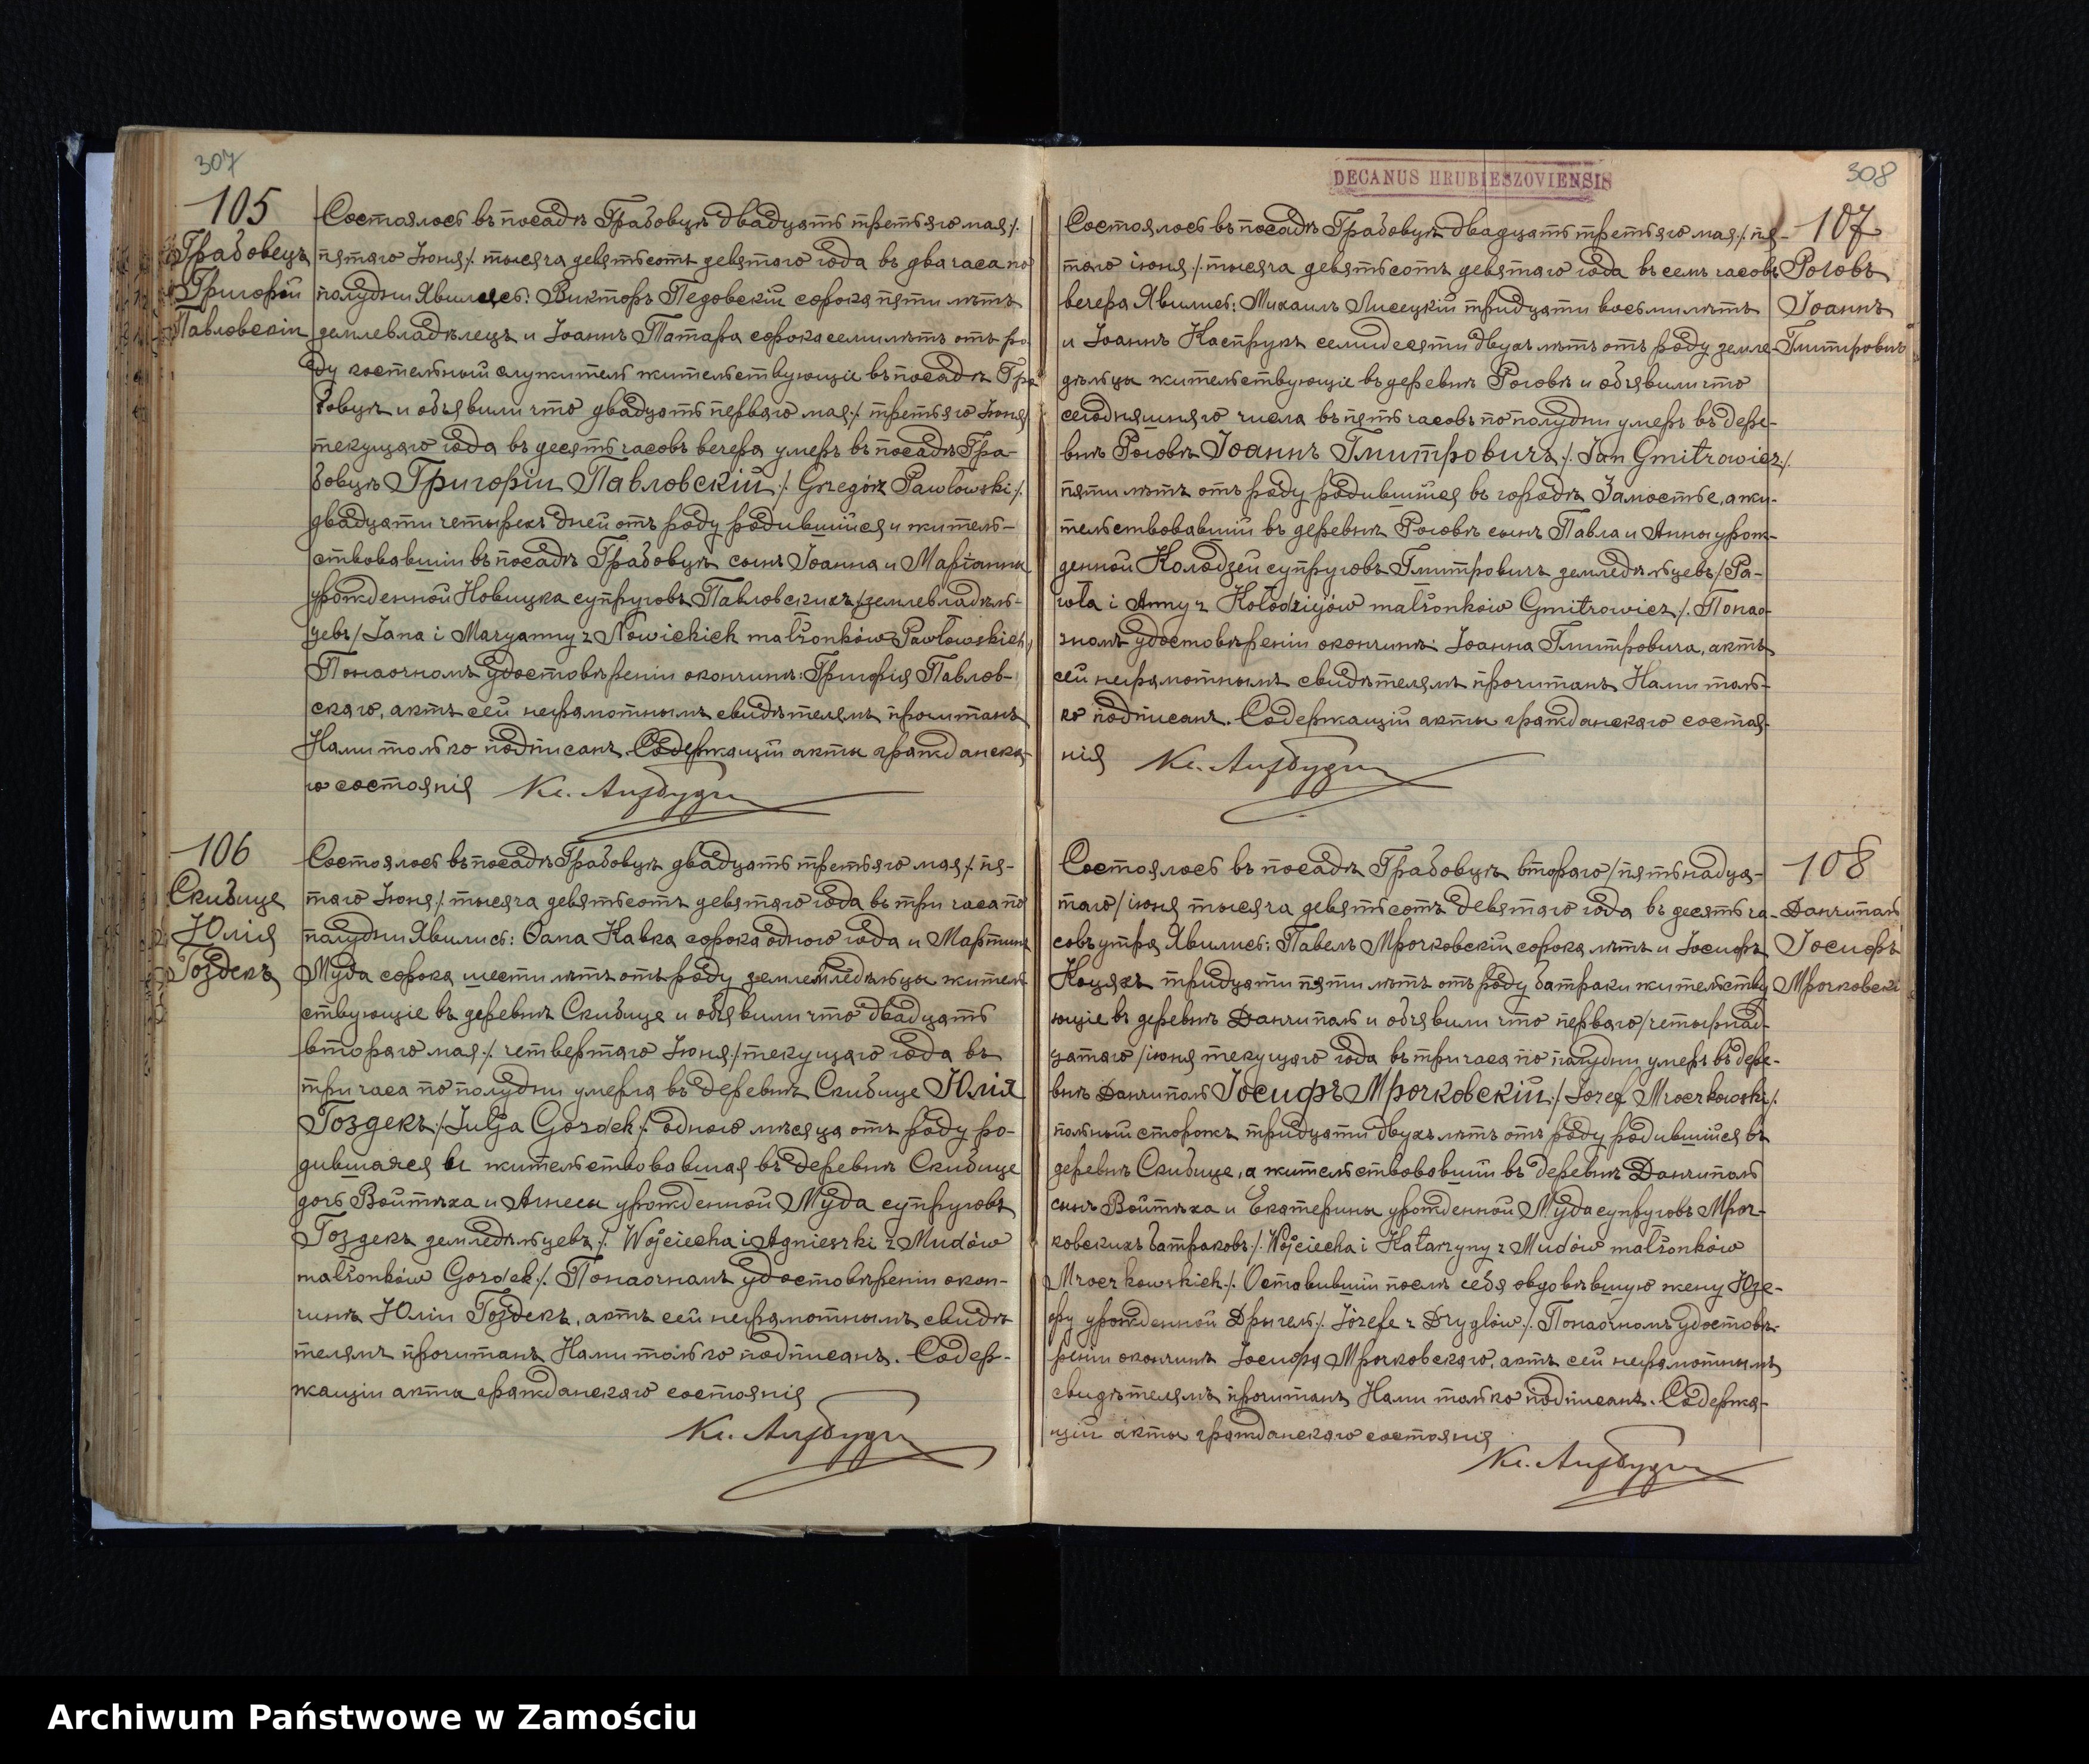 307
105
Грабовецъ
Григорій
Павловскій
Состоялось въ посадѣ Грабовцѣ двадцать третьяго мая/.
пятаго Іюня/. тысяча девятьсотъ девятаго года въ два часа по
полудни Явились: Викторъ Педовскій сорока пяти лѣтъ
землевладѣлецъ и Іоаннъ Татара сорока семи лѣтъ отъ ро-
ду костельный служитель жительствующіе въ посадѣ Гра
бовцѣ и объявили что двадцать перваго мая/. третьяго Іюня
текущаго года въ десять часовъ вечера умеръ въ посадѣ Гра-
бовцѣ Григорій Павловскій/. Grzegórz Pawłowski/.
двадцати четырехъ дней отъ роду родившійся и житель-
ствовавшій въ посадѣ Грабовцѣ сынъ Іоанна и Маріанны
урожденной Новицка супруговъ Павловскихъ/землевладѣль-
цевъ/Jana i Maryanny z Nowickich małżonków Pawłowskich/
По наочномъ удостовѣреніи кончины: Григорія Павлов-
скаго, актъ сей неграмотнымъ свидѣтелямъ прочитанъ
Нами только подписанъ. Содержащій акты гражданска-
го состоянія
106
Скибице
Юлія
Гоздекъ
Состоялось въ посадѣ Грабовцѣ двадцать третьяго мая/. пя-
таго Іюня/. тысяча девятьсотъ девятаго года въ три часа по
полудни Явились: Ѳома Кавка сорока одного года и Мартинъ
Муда сорока шести лѣтъ отъ роду земледѣльцы житель
ствующіе въ деревнѣ Скибице и объявили что двадцать
втораго мая/. четвертаго Іюня/текущаго года въ
три часа по полудни умерла въ деревнѣ Скибице Юлія
Гоздекъ/. Julja Gozdek/. одного мѣсяца отъ роду ро-
дившаяся и жительствовавшая въ деревнѣ Скибице
дочь Войтѣха и Агнесы урожденной Муда супруговъ
Гоздекъ земледѣльцевъ/. Wojciecha i Agnieszki z Mudów
małżonków Gozdek/. По наочномъ удостовѣреніи кон-
чины Юліи Гоздекъ, актъ сей неграмотнымъ свидѣ
телямъ прочитанъ Нами только подписанъ. Содер-
жащій акты гражданскаго состоянія
DECANUS HRUBIESZOVIENSIS
308
107
Роговъ
Іоаннъ
Гмитровичъ
Состоялось въ посадѣ Грабовцѣ двадцать третьяго мая/. пя-
таго іюня/. тысяча девятьсотъ девятаго года въ семь часовъ
вечера Явились: Михаилъ Лисецкій тридцати восьми лѣтъ
и Іоаннъ Каспрукъ семидесяти двухъ лѣтъ отъ роду земле-
дѣльцы жительствующіе въ деревнѣ Роговѣ и объявили что
сегодняшняго числа въ пять часовъ по полудни умеръ въ дере-
внѣ Роговѣ Іоаннъ Гмитровичъ/. Jan Gmitrowicz/.
пяти лѣтъ отъ роду родившійся въ городѣ Замостье, а жи-
тельствовавшій въ деревнѣ Роговѣ сынъ Павла и Анны урож-
денной Колодзей супруговъ Гмитровичъ земледѣльцевъ/Pa-
wła i Anny z Kołodziejów małżonków Gmitrowicz/. По нао-
чномъ удостовѣреніи кончины: Іоанна Гмитровича, актъ
сей неграмотнымъ свидѣтелямъ прочитанъ Нами толь-
ко подписанъ. Содержащій акты гражданскаго состоя-
нія
108
Данчиполь
Іосифъ
Мрочковскі
Состоялось въ посадѣ Грабовцѣ втораго/пятьнадца-
таго/іюня тысяча девятьсотъ девятаго года въ десять ча-
совъ утра Явились: Павелъ Мрочковскій сорока лѣтъ и Іосифъ
Коцякъ тридцати пяти лѣтъ отъ роду батраки жительству
ющіе въ деревнѣ Данчиполь и объявили что перваго/четырнад-
цатаго/іюня текущаго года въ три часа по полудни умеръ въ дере-
внѣ Данчиполь Іосифъ Мрочковскій/. Józef Mroczkowski/.
полный сторожъ тридцати двухъ лѣтъ отъ роду родившійся въ
деревнѣ Скибице, а жительствовавшій въ деревнѣ Данчиполь
сынъ Войтѣха и Екатерины урожденной Муда супруговъ Мроч-
ковскихъ батраковъ/. Wojciecha i Katarzyny z Mudów małżonków
Mroczkowskich/. Оставившій послѣ себя овдовѣвшую жену Юзе-
фу урожденной Дрыгель/. Józefę z Dryglów/. По наочномъ удостовѣ-
реніи кончины Іосифа Мрочковскаго, актъ сей неграмотнымъ
свидѣтелямъ прочитанъ Нами только подписанъ. Содержа-
щій акты гражданскаго состоянія
Archiwum Państwowe w Zamościu